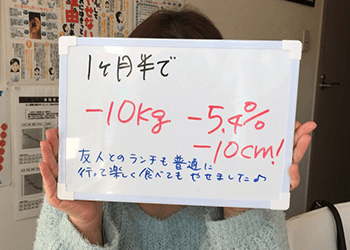 1ヶ月半で
-10kg -5.4%
-10cm!
友人とのランチも普通に
行って楽しく食べてもやせました♪